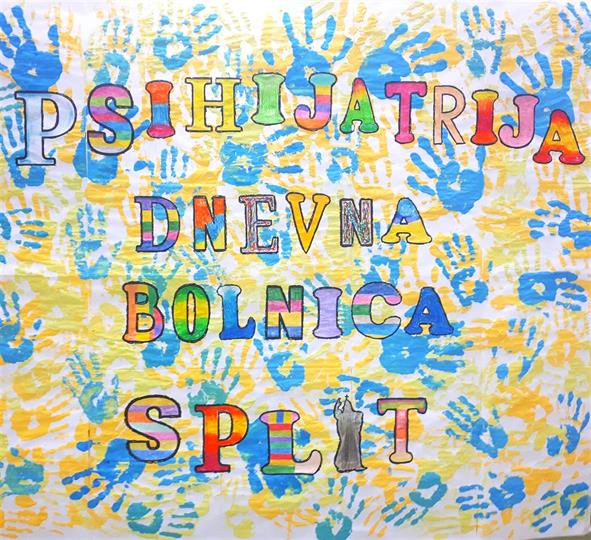 PSIHIJATRIJA
DNEVNA
BOLNICA
SPLIT